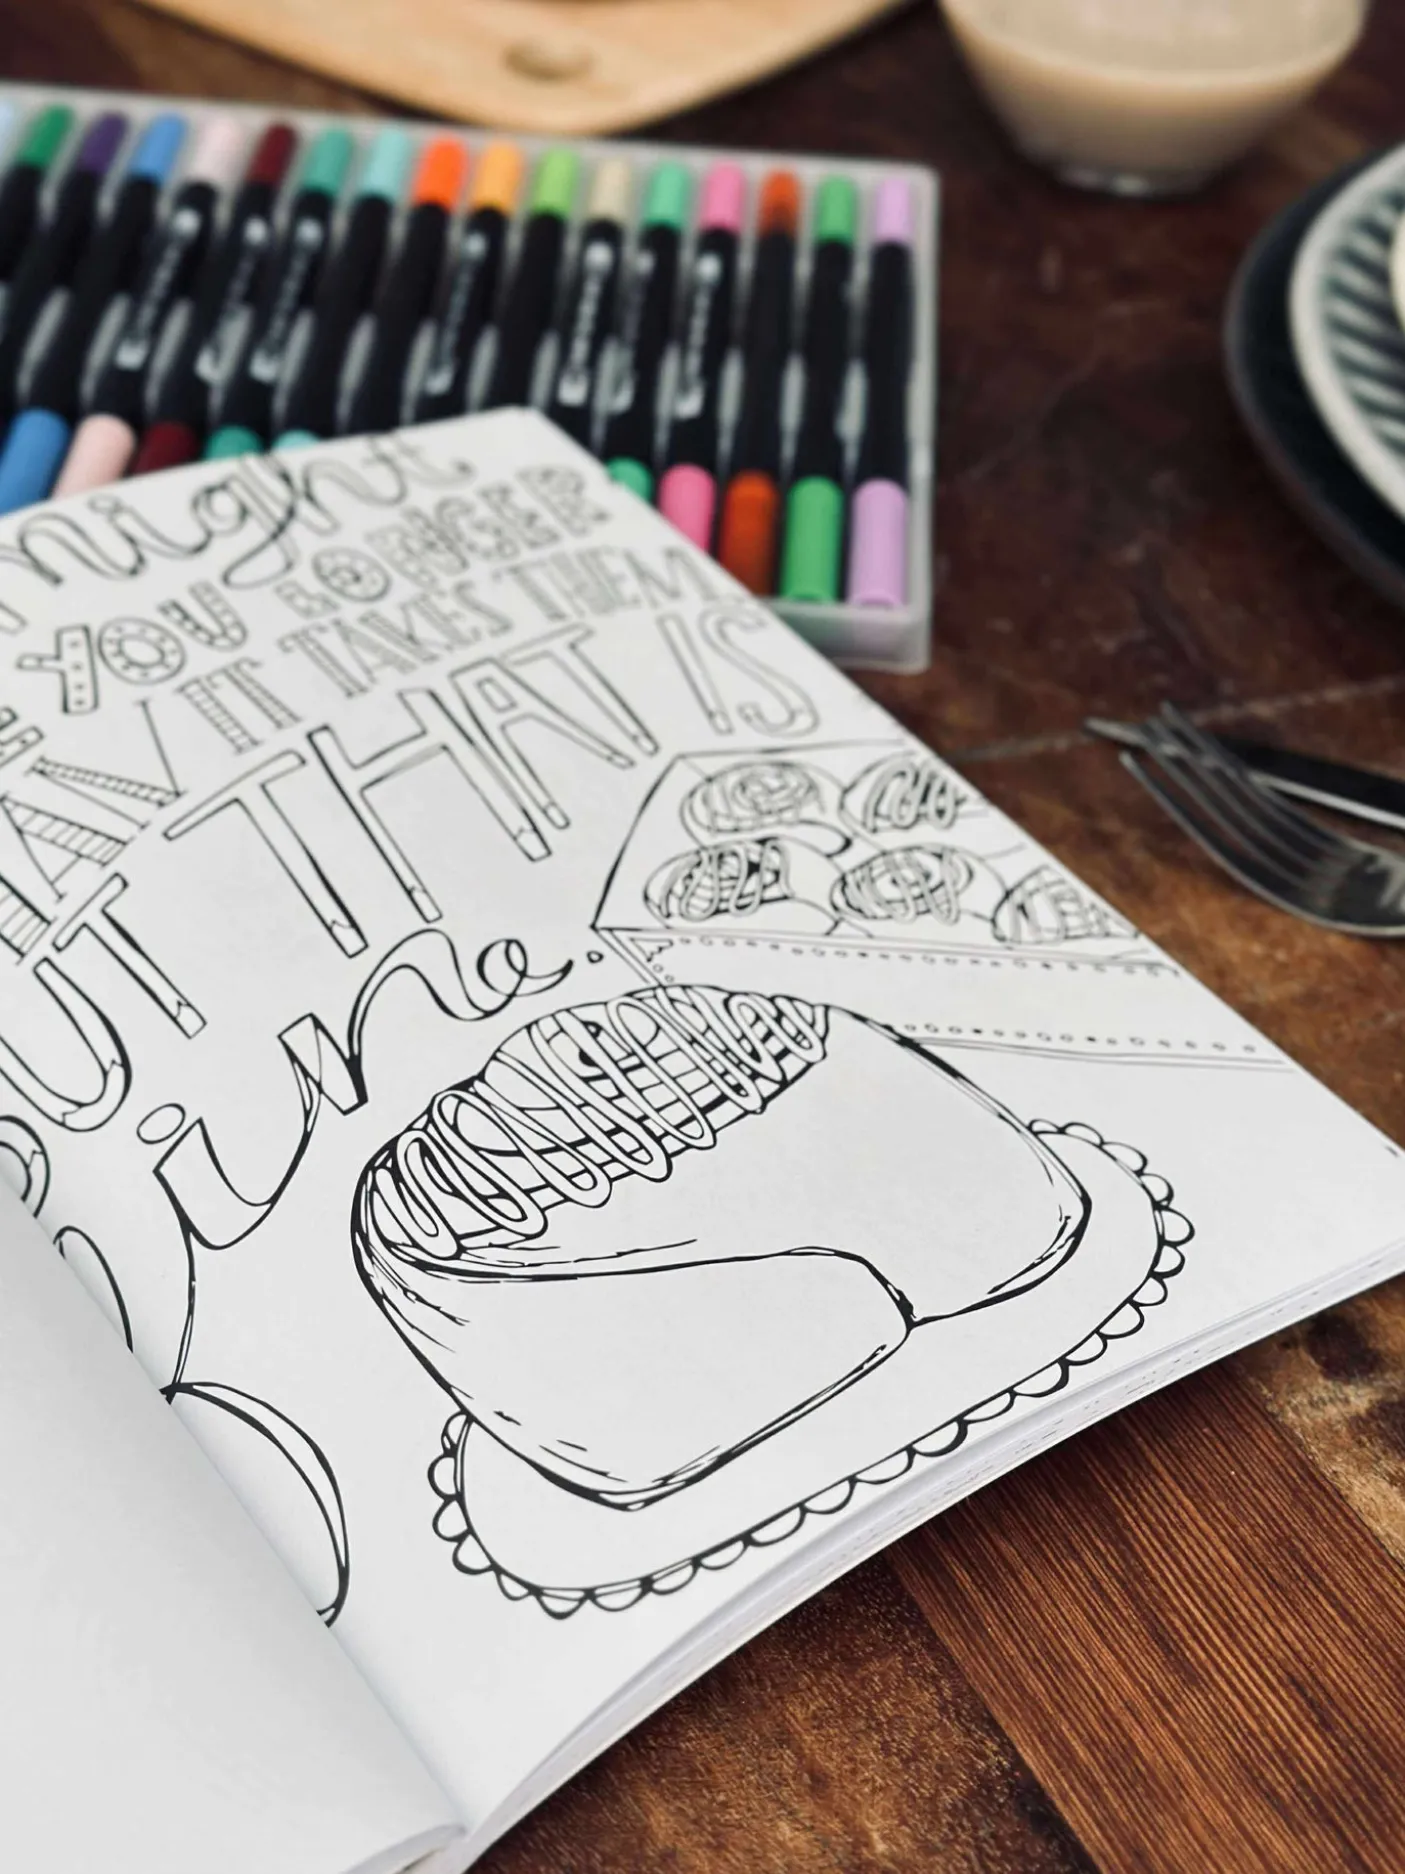 night
YOU LONGER
AY IT TAKES THEM
UT THAT IS
ine.